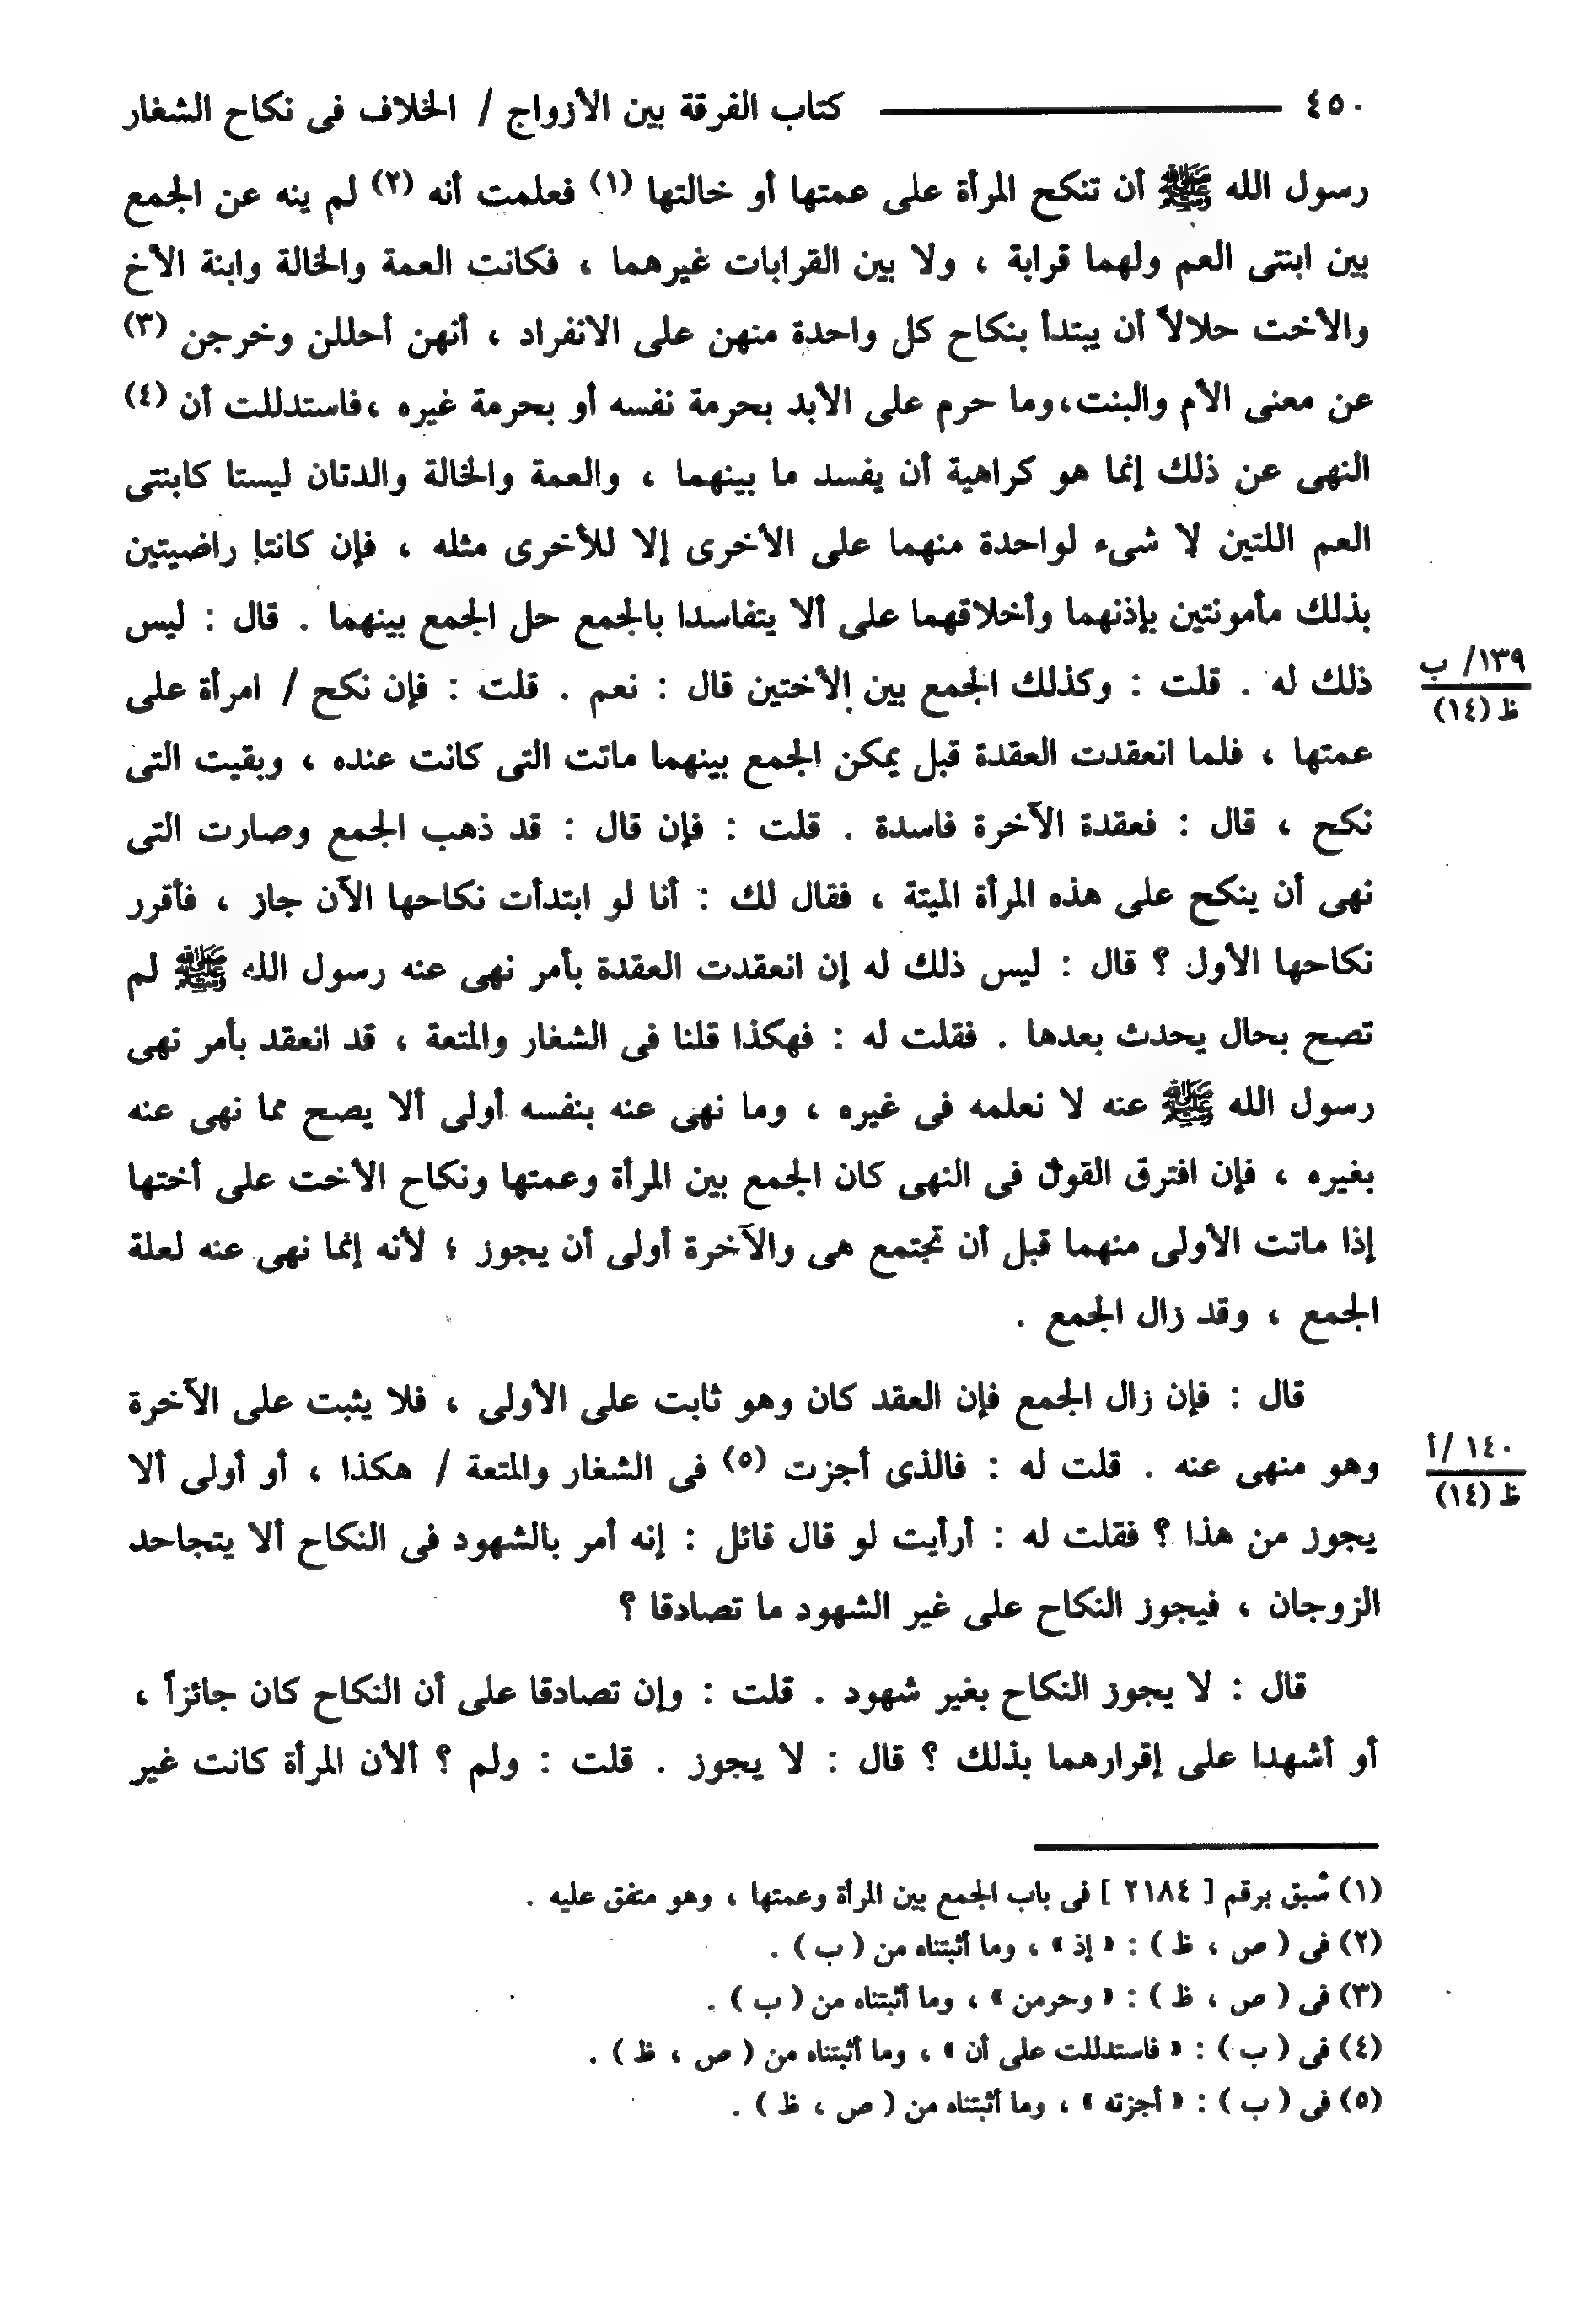 ٤٥٠ كتاب الفرقة بين الأزواج / الخلاف فى نكاح الشغار
رسول الله ﷺ أن تنكح المرأة على عمتها أو خالتها (١) فعلمت أنه (٢) لم ينه عن الجمع
بين ابنتى العم ولهما قرابة ، ولا بين القرابات غيرهما ، فكانت العمة والخالة وابنة الأخ
والأخت حلالاً أن يبتدأ بنكاح كل واحدة منهن على الانفراد ، أنهن أحللن وخرجن (٣)
عن معنى الأم والبنت، وما حرم على الأبد بحرمة نفسه أو بحرمة غيره ،فاستدللت أن (٤)
النهى عن ذلك إنما هو كراهية أن يفسد ما بينهما ، والعمة والخالة والدتان ليستا كابنتى
العم اللتين لا شىء لواحدة منهما على الأخرى إلا للأخرى مثله ، فإن كانتا راضيتين
بذلك مأمونتين بإذنهما وأخلاقهما على ألا يتفاسدا بالجمع حل الجمع بينهما . قال : ليس
ذلك له . قلت : وكذلك الجمع بين الأختين قال : نعم . قلت : فإن نكح / امرأة على
١٣٩/ ب
ظ (١٤)
عمتها ، فلما انعقدت العقدة قبل يمكن الجمع بينهما ماتت التى كانت عنده ، وبقيت التى
نكح ، قال : فعقدة الآخرة فاسدة . قلت : فإن قال : قد ذهب الجمع وصارت التى
نهى أن ينكح على هذه المرأة الميتة ، فقال لك : أنا لو ابتدأت نكاحها الآن جاز ، فأقرر
نكاحها الأول ؟ قال : ليس ذلك له إن انعقدت العقدة بأمر نهى عنه رسول الله ﷺ لم
تصح بحال يحدث بعدها . فقلت له : فهكذا قلنا فى الشغار والمتعة ، قد انعقد بأمر نهى
رسول الله ﷺ عنه لا نعلمه فى غيره ، وما نهى عنه بنفسه أولى ألا يصح مما نهى عنه
بغيره ، فإن افترق القول فى النهى كان الجمع بين المرأة وعمتها ونكاح الأخت على أختها
إذا ماتت الأولى منهما قبل أن تجتمع هى والآخرة أولى أن يجوز ؛ لأنه إنما نهى عنه لعلة
الجمع ، وقد زال الجمع .
قال : فإن زال الجمع فإن العقد كان وهو ثابت على الأولى ، فلا يثبت على الآخرة
وهو منهى عنه . قلت له : فالذى أجزت (٥) فى الشغار والمتعة / هكذا ، أو أولى ألا
١٤٠ /أ
ظ (١٤)
يجوز من هذا ؟ فقلت له : أرأيت لو قال قائل : إنه أمر بالشهود فى النكاح ألا يتجاحد
الزوجان ، فيجوز النكاح على غير الشهود ما تصادقا ؟
قال : لا يجوز النكاح بغير شهود . قلت : وإن تصادقا على أن النكاح كان جائزاً ،
أو أشهدا على إقرارهما بذلك ؟ قال : لا يجوز . قلت : ولم ؟ ألأن المرأة كانت غير
(١) سبق برقم [ ٢١٨٤ ] فى باب الجمع بين المرأة وعمتها ، وهو متفق عليه .
(٢) فى ( ص ، ظ ) : « إذ » ، وما أثبتناه من ( ب ) .
(٣) فى ( ص ، ظ ) : « وحرمن » ، وما أثبتناه من ( ب ) .
(٤) فى ( ب ) : « فاستدللت على أن » ، وما أثبتناه من ( ص ، ظ ) .
(٥) فى ( ب ) : « أجزته » ، وما أثبتناه من ( ص ، ظ ) .